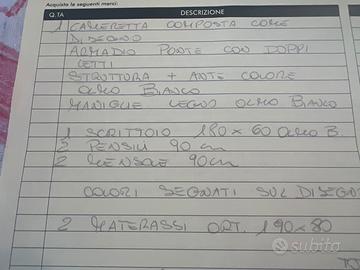 Acquista le seguenti merci:
Q.TA DESCRIZIONE
1 CAMERETTA COMPOSTA COME
DISEGNO
ARMADIO PONTE CON DOPPI
LETTI
STRUTTURA + ANTE COLORE
OLMO BIANCO
MANIGLIE LEGNO OLMO BIANCO
1 SCRITTOIO 180 x 60 OLMO B.
2 PENSILI 90 cm
2 MENSOLE 90cm
COLORI SEGNATI SUL DISEGN
2 MATERASSI ORT. 190 x 80
subito